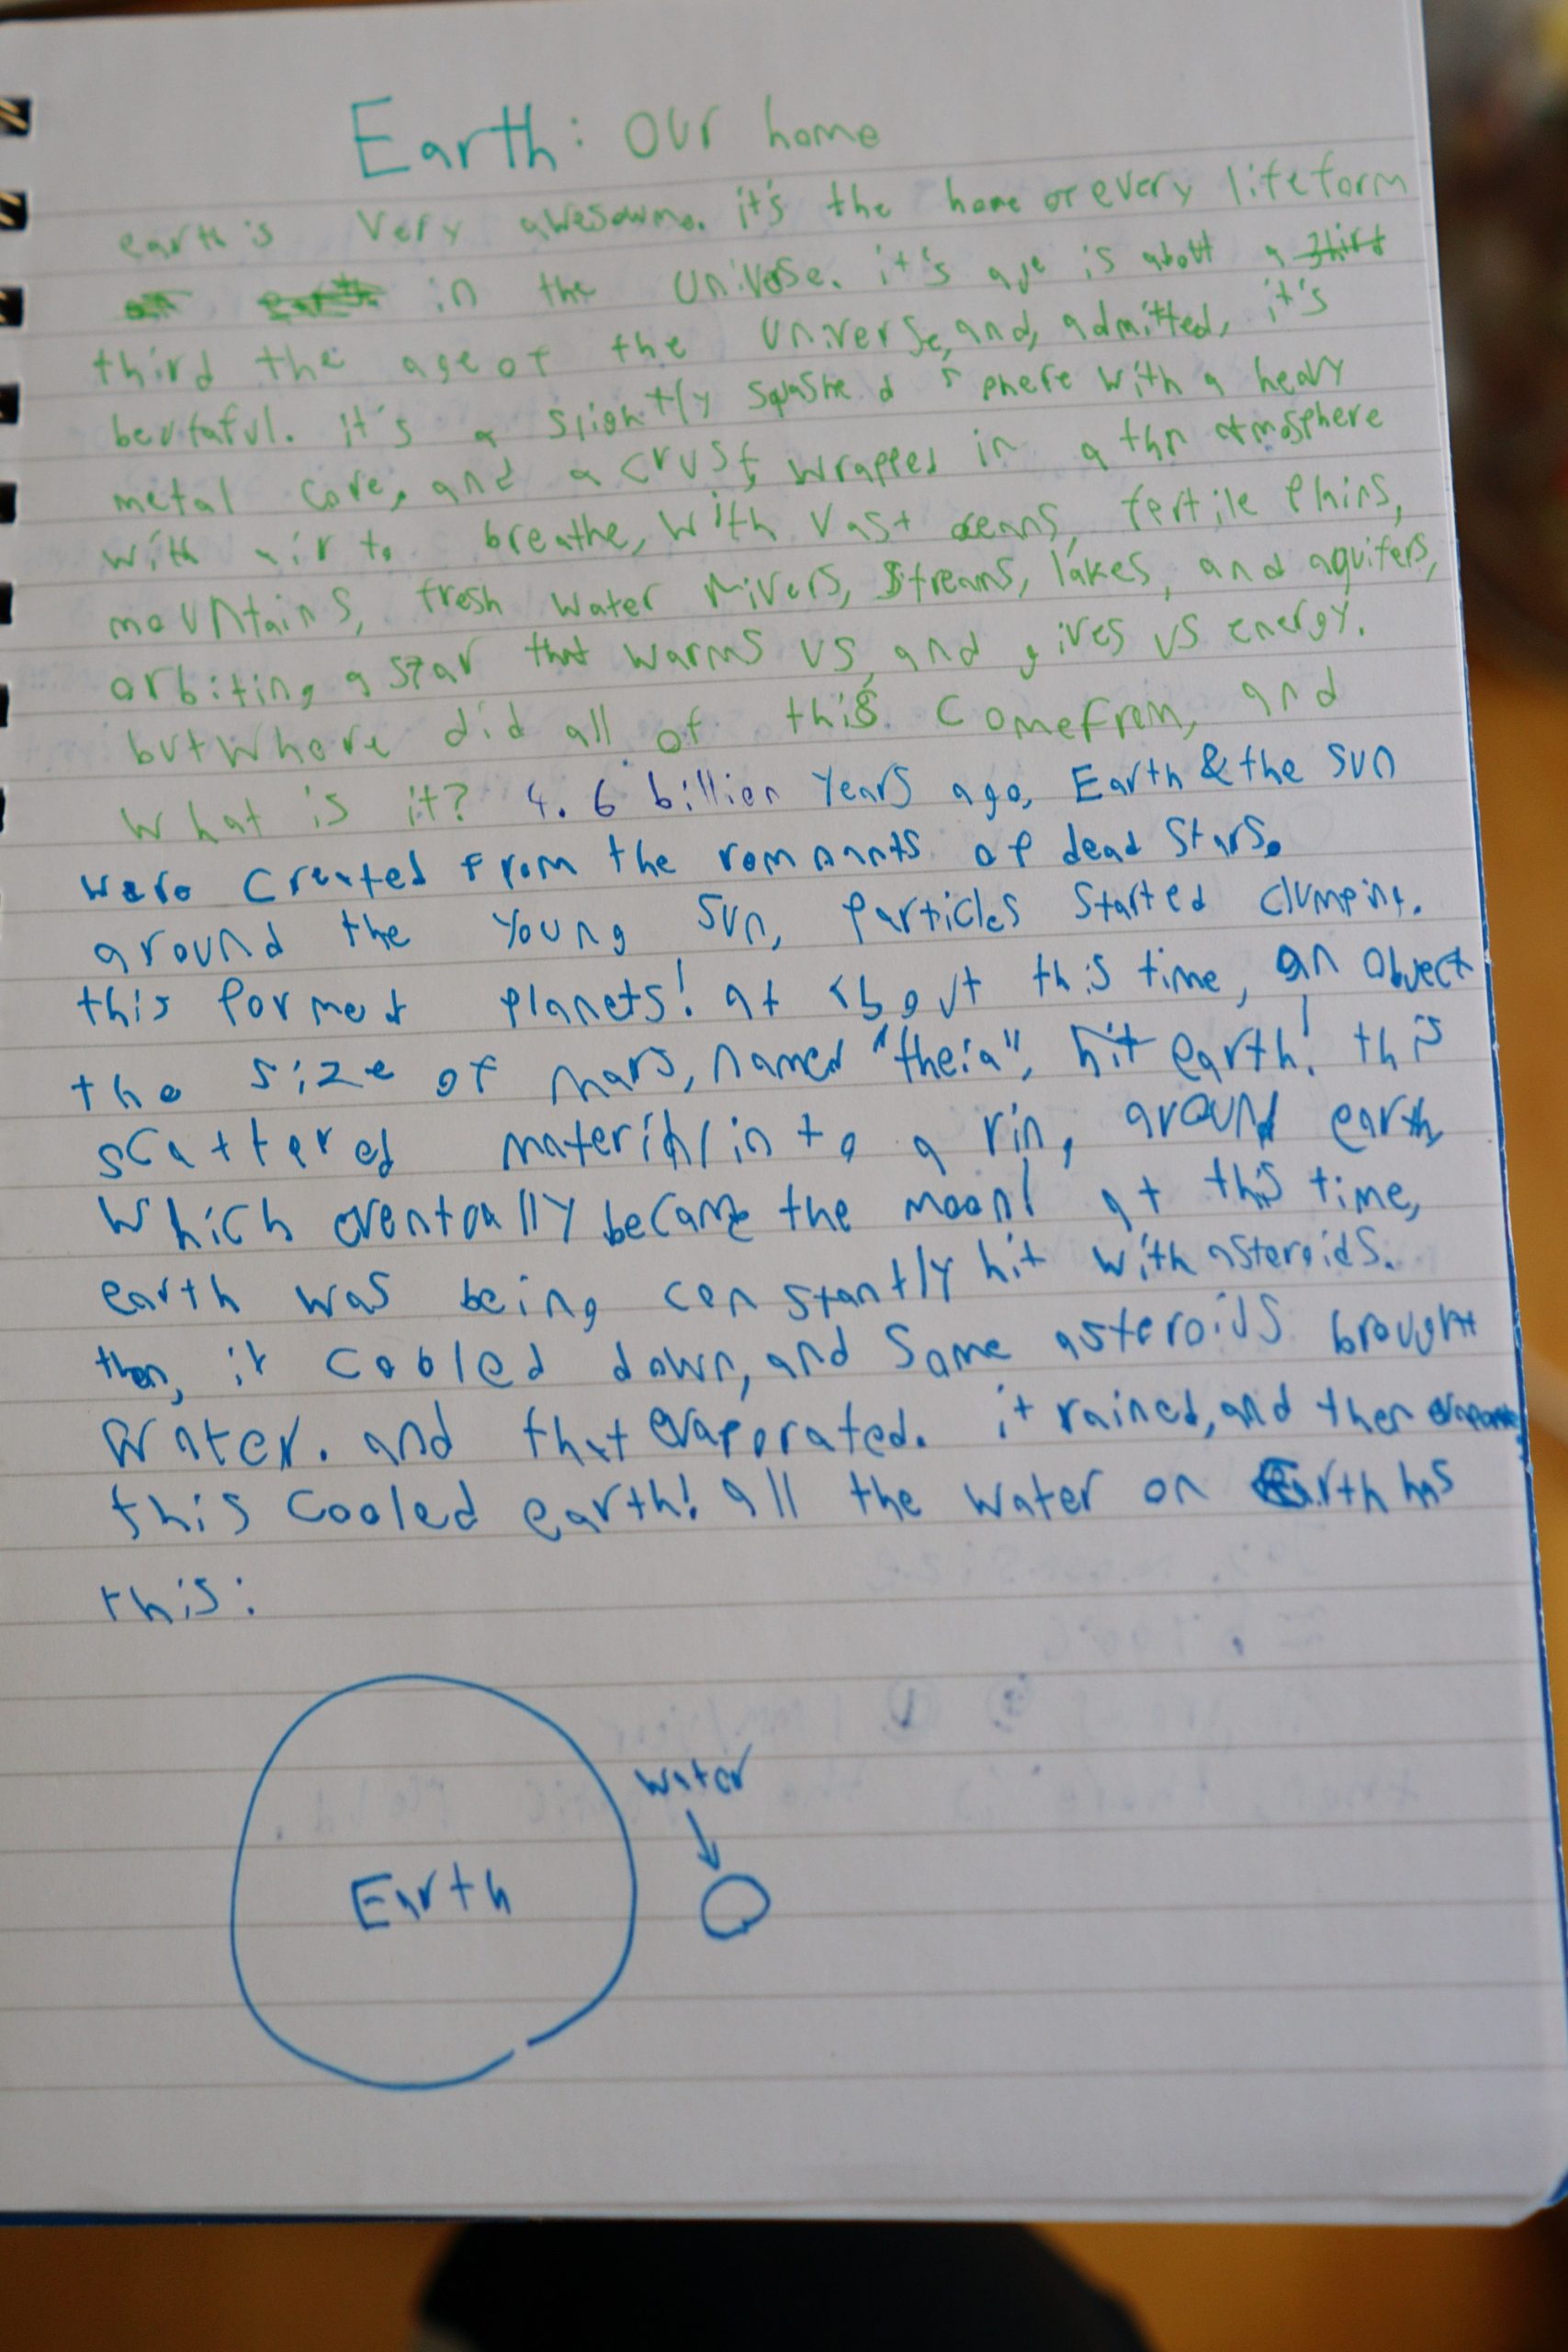 Earth: Our home
earth is very awesowme. it's the home or every lifeform
in the universe. it's age is about a third
third the age of the universe, and, admitted, it's
beutaful. it's a slightly squashed sphere with a heavy
metal core, and a crust, wrapped in a thin atmosphere
with air to breathe, with vast oceans, fertile plains,
mountains, fresh water rivers, streams, lakes, and aquifers,
orbiting a star that warms us, and gives us energy.
but where did all of this come from, and
what is it? 4.6 billion years ago, Earth & the sun
were created from the remnants of dead stars.
around the young sun, particles started clumping.
this formed planets! at about this time, an object
the size of mars, named "theia", hit earth! this
scattered material into a ring around earth,
which eventually became the moon! at this time,
earth was being constantly hit with asteroids.
then, it cooled down, and some asteroids brought
water. and that evaporated. it rained, and then
this cooled earth! all the water on Earth has
this:
water
Earth